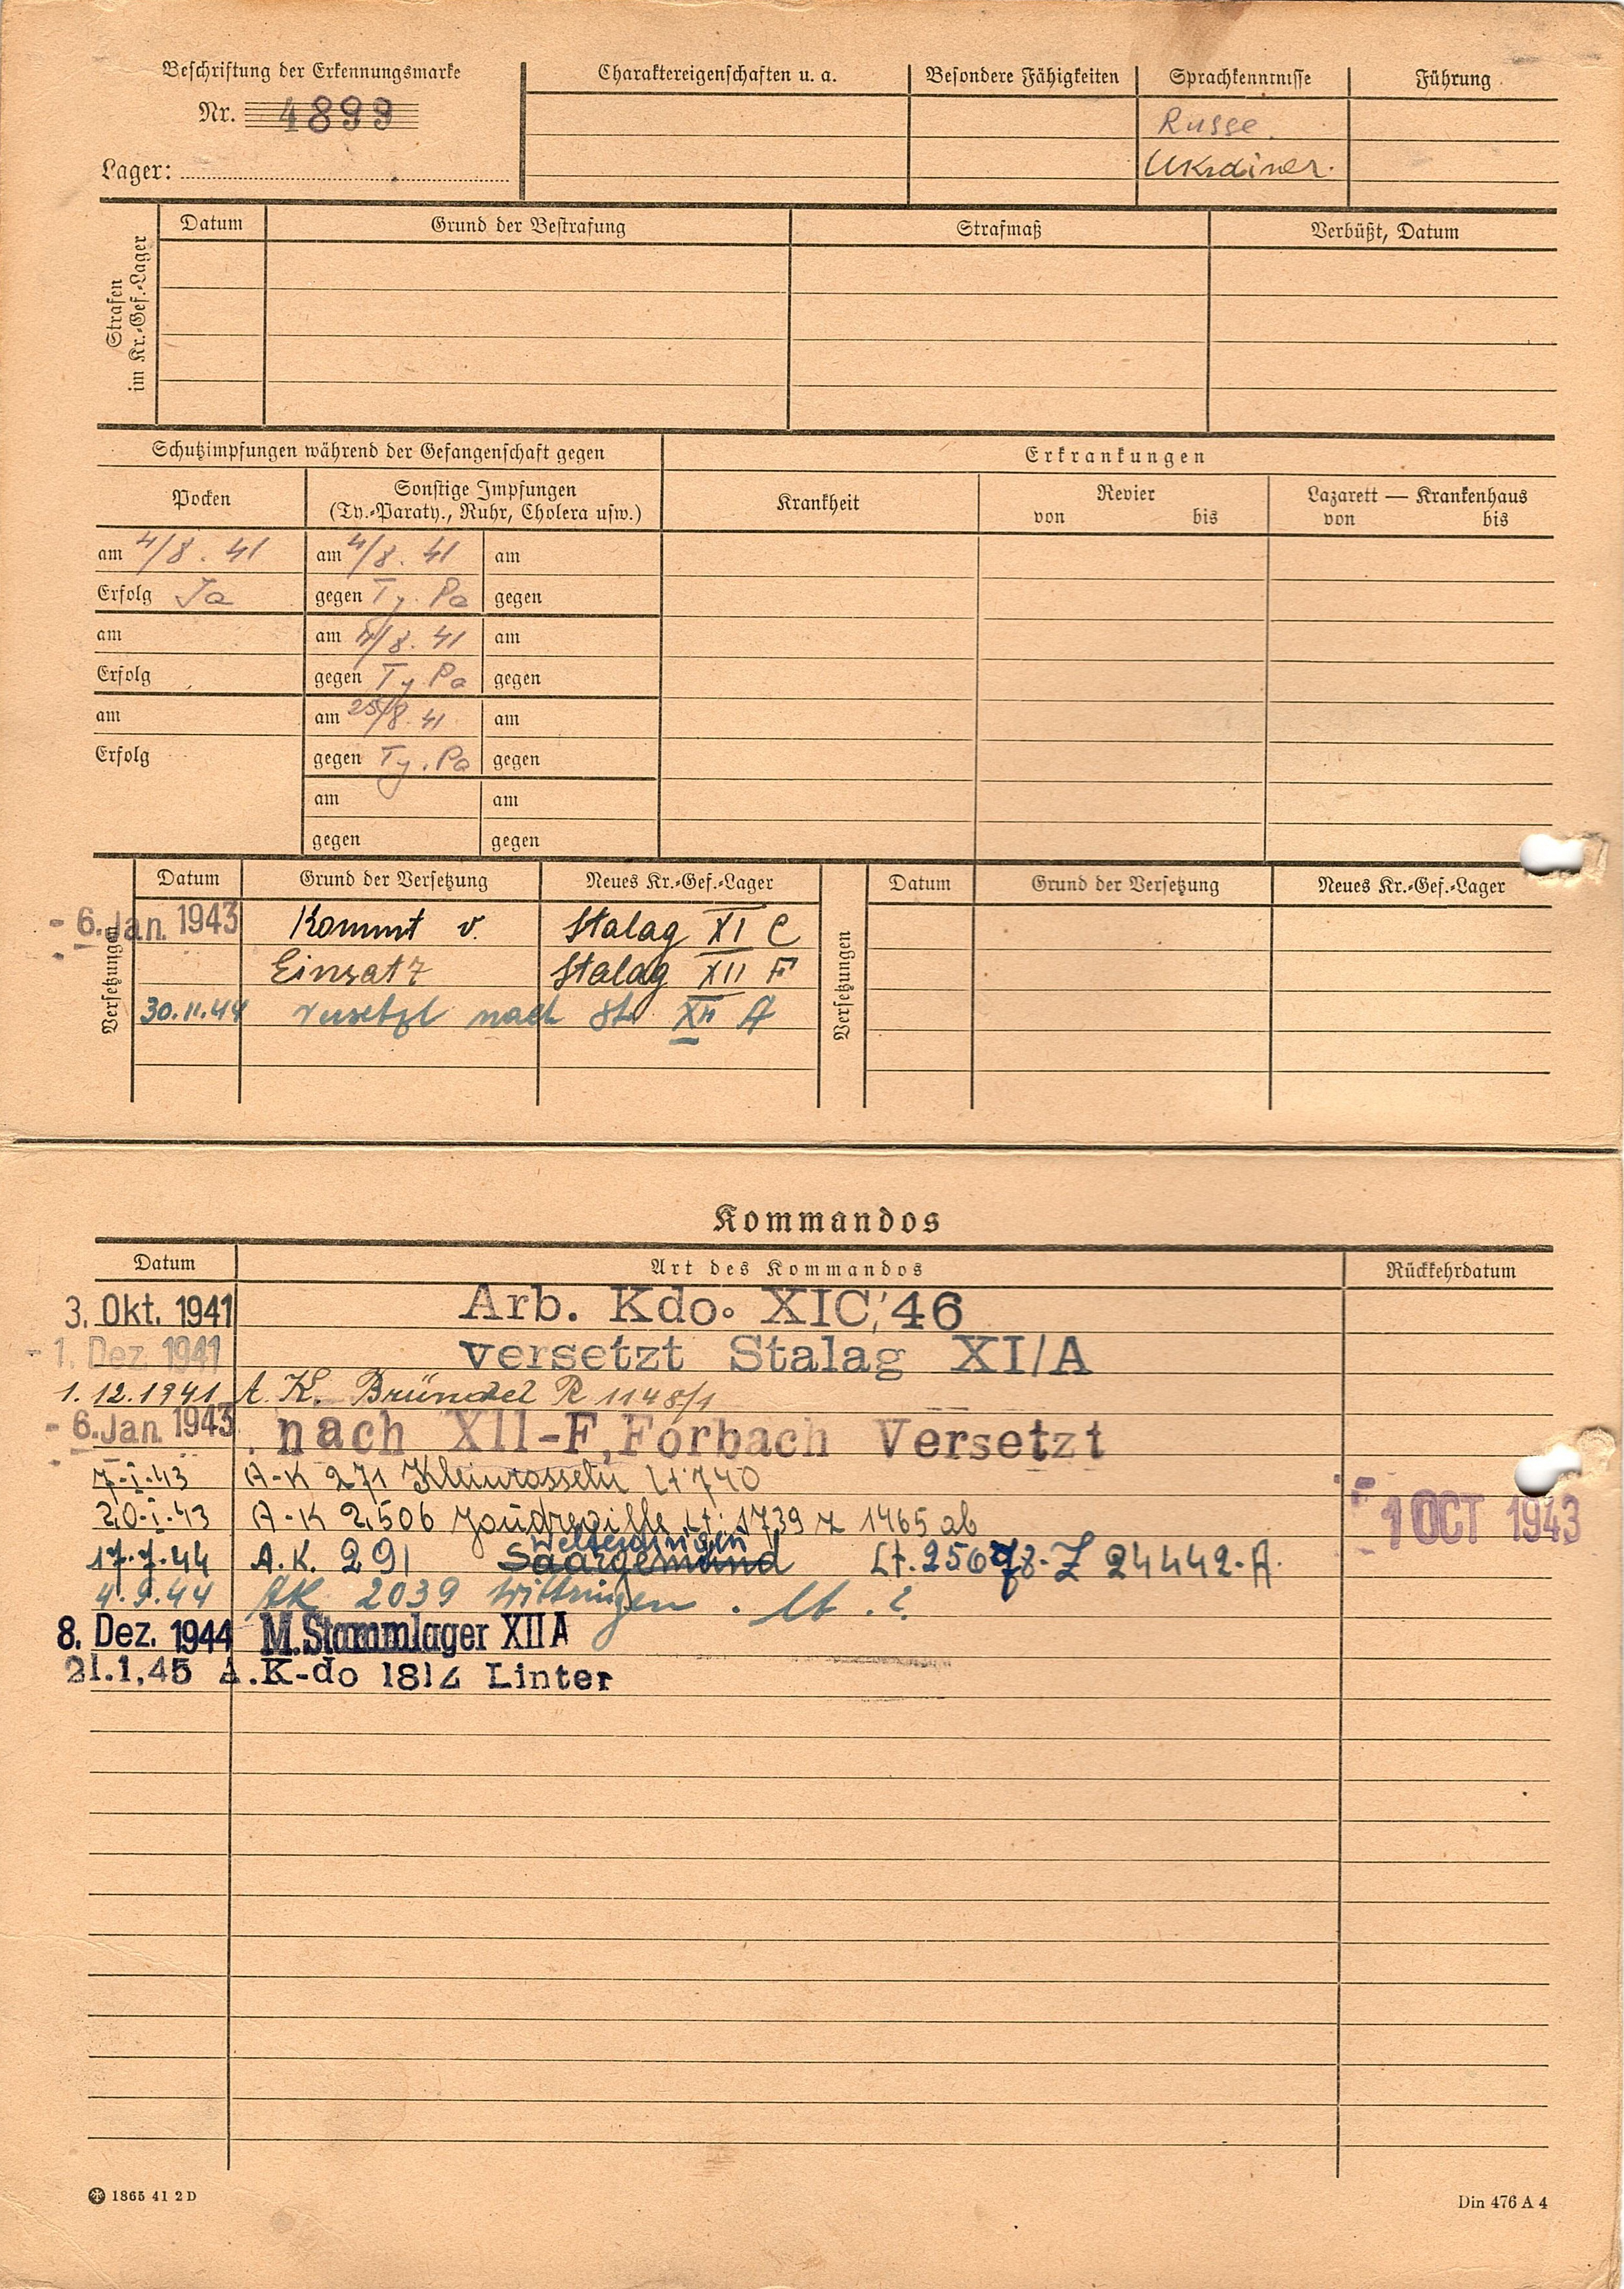 Beschriftung der Erkennungsmarke
Nr. 4899
Lager:
Charaktereigenschaften u. a.
Besondere Fähigkeiten
Sprachkenntnisse
Führung
Russe.
Ukrainer.
Strafen im Kr.-Gef.-Lager
Datum
Grund der Bestrafung
Strafmaß
Verbüßt, Datum
Schutzimpfungen während der Gefangenschaft gegen
Erkrankungen
Pocken
Sonstige Impfungen
(Ty.-Paraty., Ruhr, Cholera usw.)
Krankheit
Revier
von bis
Lazarett — Krankenhaus
von bis
am 4/8. 41 am 4/8. 41 am
Erfolg Ja gegen Ty. Pa gegen
am am /8. 41 am
Erfolg gegen Ty. Pa gegen
am am 25/8. 41 am
Erfolg gegen Ty. Pa gegen
am am
gegen gegen
Versetzungen
Datum Grund der Versetzung Neues Kr.-Gef.-Lager
- 6. Jan. 1943 Kommt v. Stalag XI C
Einsatz Stalag XII F
30.11.44 versetzt nach St. XII A
Versetzungen
Datum Grund der Versetzung Neues Kr.-Gef.-Lager
Kommandos
Datum Art des Kommandos Rückkehrdatum
3. Okt. 1941 Arb. Kdo. XIC, 46
- 1. Dez. 1941 versetzt Stalag XI/A
1.12.1941 A. K. Bründel R 1148/1
- 6. Jan. 1943 nach XII-F, Forbach Versetzt
7-I-43 A-K 271 Kleinrosseln Lt. 740
20-I-43 A-K 2506 Joudreville Lt. 1739 z 1465 ab
- 1 OCT 1943
Welferdingen
17.7.44 A.K. 291 Saargemünd Lt. 25678-Z 24442-A.
4.9.44 AK 2039 Wittringen. Lt. 2.
8. Dez. 1944 M.Stammlager XII A
21.1.45 A.K-do 1814 Linter
1865 41 2 D
Din 476 A 4